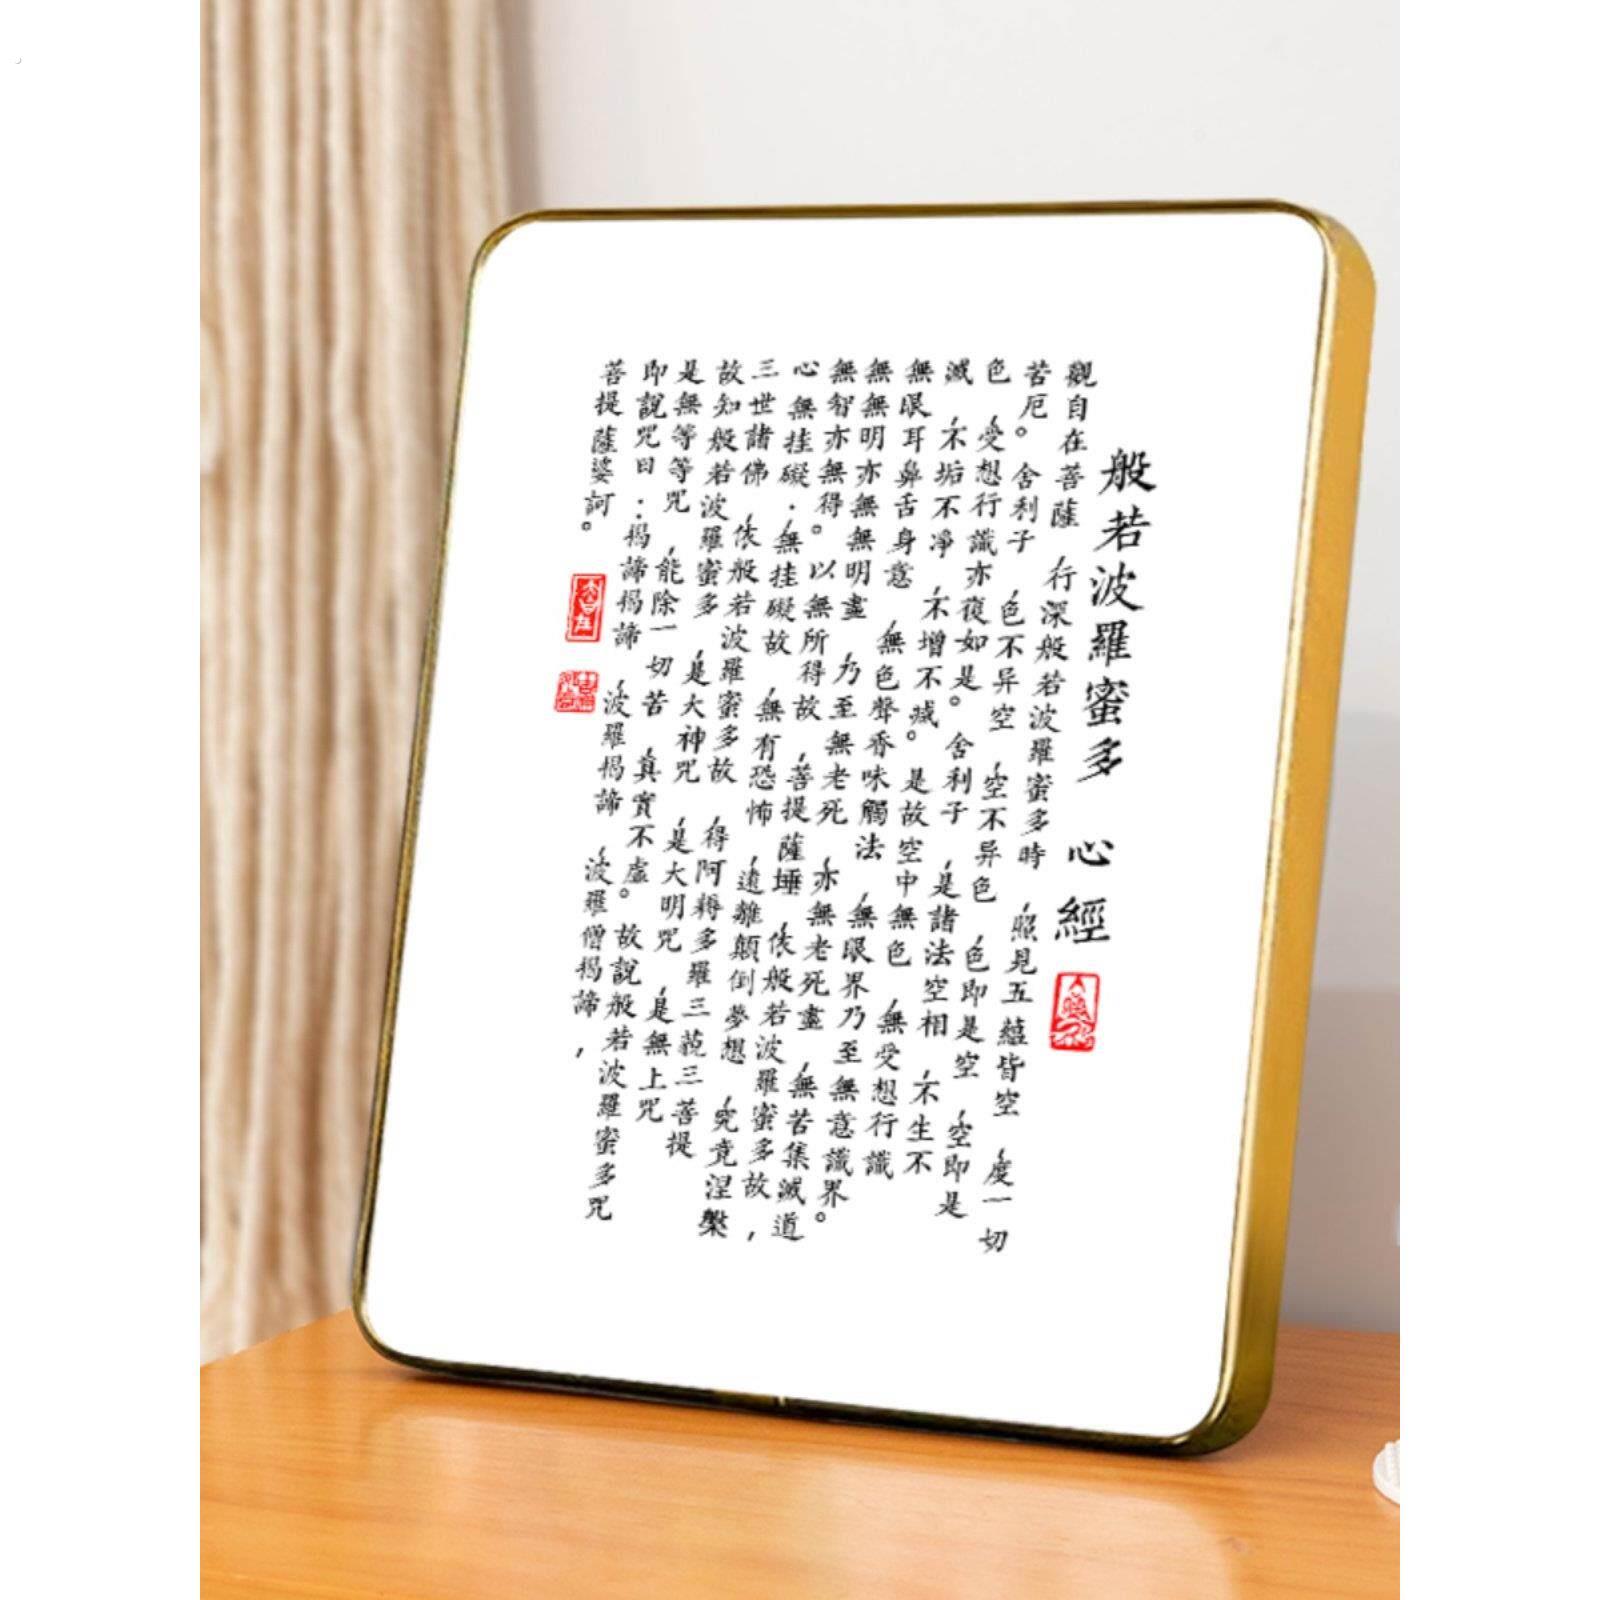 般若波羅蜜多 心經
觀自在菩薩,行深般若波羅蜜多時,照見五蘊皆空,度一切
苦厄。舍利子,色不异空,空不异色,色即是空,空即是
色,受想行識亦復如是。舍利子,是諸法空相,不生不
滅,不垢不凈,不增不減。是故空中無色,無受想行識
無眼耳鼻舌身意,無色聲香味觸法,無眼界乃至無意識界。
無無明亦無無明盡,乃至無老死,亦無老死盡,無苦集滅道
無智亦無得。以無所得故,菩提薩埵,依般若波羅蜜多故,
心無挂礙.無挂礙故,無有恐怖,遠離顛倒夢想,究竟涅槃
三世諸佛,依般若波羅蜜多故,得阿耨多羅三藐三菩提
故知般若波羅蜜多,是大神咒,是大明咒,是無上咒
是無等等咒,能除一切苦,真實不虛。故說般若波羅蜜多咒
即說咒曰:揭諦揭諦,波羅揭諦,波羅僧揭諦,
菩提薩婆訶。